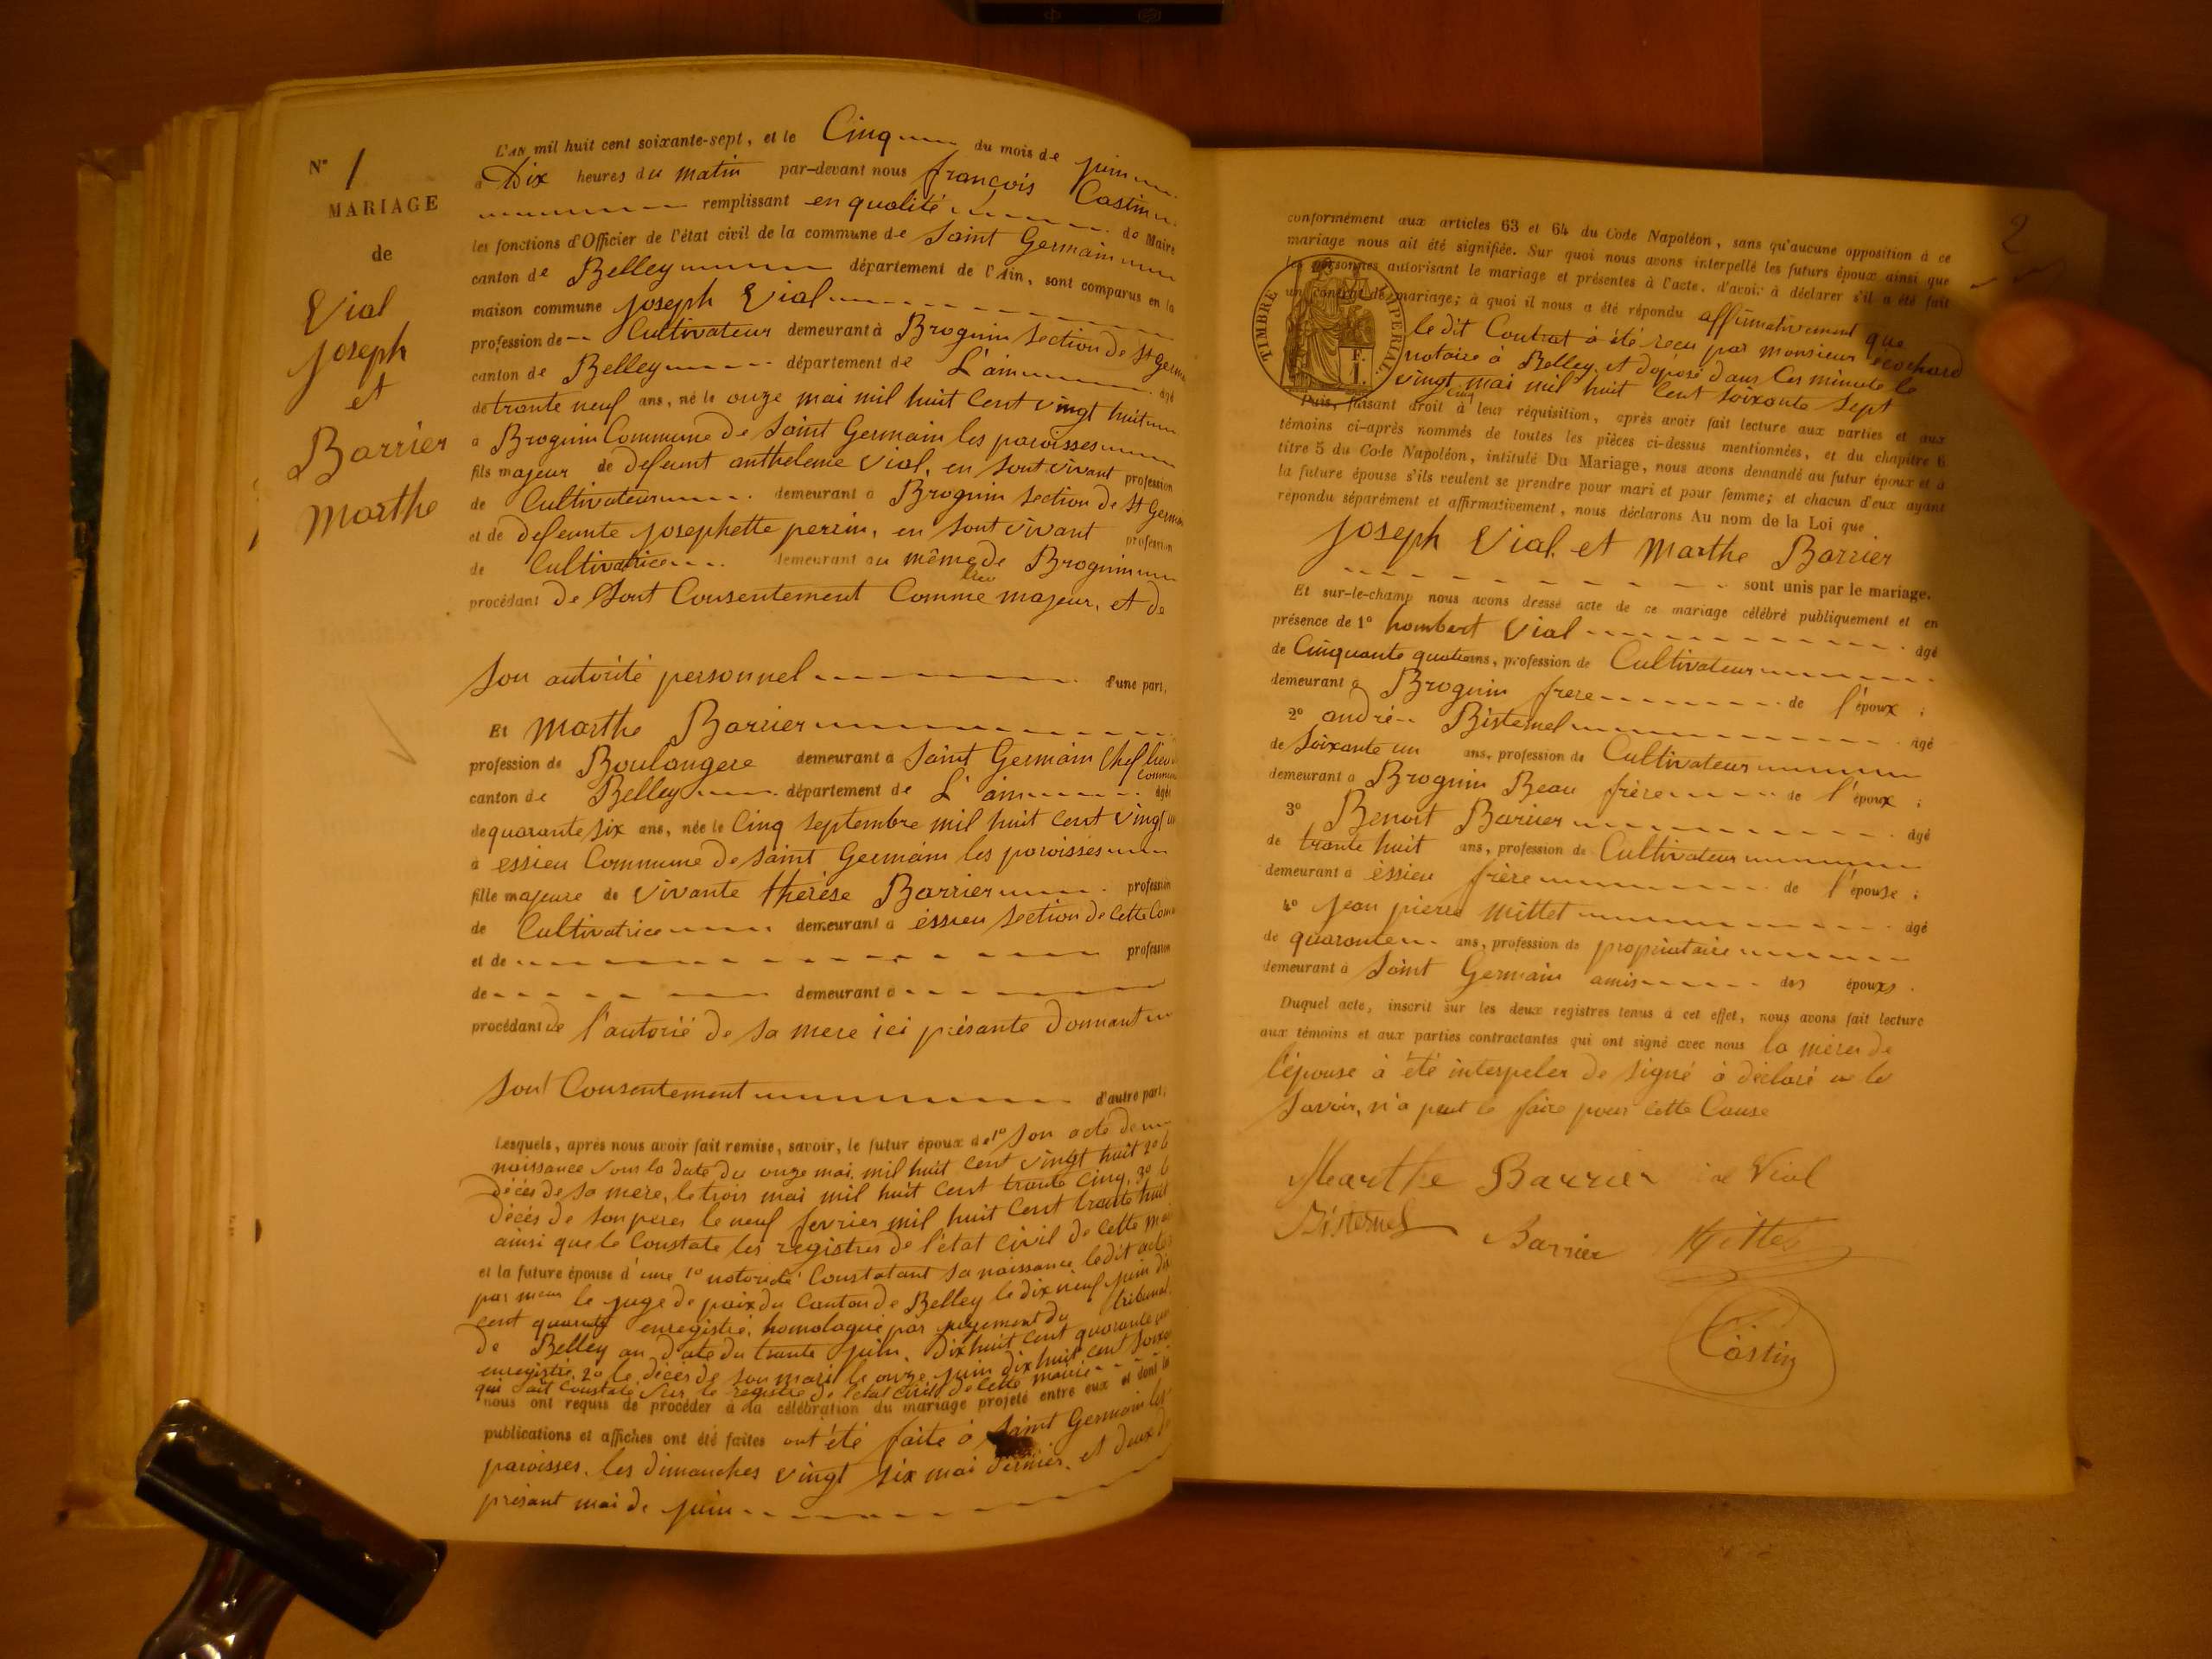 N° 1
MARIAGE
de
Vial
joseph
et
Barrier
Marthe
L'AN mil huit cent soixante-sept, et le Cinq du mois de juin
à Dix heures du matin par-devant nous françois Castin
remplissant en qualité de Maire
les fonctions d'Officier de l'état civil de la commune de Saint Germain
canton de Belley département de l'Ain, sont comparus en la
maison commune joseph Vial
profession de Cultivateur demeurant à Brognin Section de St Germ
canton de Belley département de L'ain âgé
de trante neuf ans, né le onze mai mil huit Cent vingt huit
à Brognin Commune de Saint Germain les paroisses
fils majeur de defeunt antheleme Vial, en sont vivant profession
de Cultivateur demeurant à Brognin Section de St Germ
et de defeunte josephette perrin, en sont vivant profession
de Cultivatrice demeurant au même lieu de Brognin
procédant de Sont Consentement Comme majeur, et de
Son autorité personnel d'une part,
Et Marthe Barrier
profession de Boulangere demeurant à Saint Germain Chef lieu Commune
canton de Belley département de L'ain âgée
de quarante six ans, née le Cinq Septembre mil huit Cent vingt
à essieu Commune de Saint Germain les paroisses
fille majeure de vivante thérèse Barrier profession
de Cultivatrice demeurant à éssieu Section de Cette Com
et de profession
de demeurant à
procédant de l'autorié de Sa mere ici présante Donnant
Sont Consentement d'autre part,
Lesquels, après nous avoir fait remise, savoir, le futur époux de 1° Son acte de
naissance Sous la Date du onze mai, mil huit Cent vingt huit 2° le
décès de Sa mere, le trois mai mil huit Cent trante Cinq, 3° le
décés de Son pere le neuf fevrier mil huit Cent trante huit
ainsi que le Constate les registres de l'état Civil de Cette
et la future épouse d'une 1° notoriété Constatant Sa naissance ledit acte
par le juge de paix du Canton de Belley le dix neuf juin dix
cent quarante enregistré, homologué par jugement du tribunal
de Belley au Date du trante juin, Dix huit Cent quarante
enregistré, 2° le décès de Son mari le onze juin dix huit cent
qui Soit Constaté Sur le registre de l'état Civil de Cette mairie
nous ont requis de procéder à la célébration du mariage projeté entre eux et dont les
publications et affiches ont été faites ont été faite à Saint Germain les
paroisses, les dimanches vingt six mai dernier, et deux du
présant moi de juin
2
conformément aux articles 63 et 64 du Code Napoléon, sans qu'aucune opposition à ce
mariage nous ait été signifiée. Sur quoi nous avons interpellé les futurs époux ainsi que
les personnes autorisant le mariage et présentes à l'acte, d'avoir à déclarer s'il a été fait
un contrat de mariage; à quoi il nous a été répondu affirmativement que
TIMBRE IMPERIAL.
F. I.
le dit Contrat à été reçu par monsieur
notaire à Belley, et déposé dans Ces minute le
vingt Cinq mai mil huit Cent soixante Sept
Puis, faisant droit à leur réquisition, après avoir fait lecture aux parties et aux
témoins ci-après nommés de toutes les pièces ci-dessus mentionnées, et du chapitre 6
titre 5 du Code Napoléon, intitulé Du Mariage, nous avons demandé au futur époux et à
la future épouse s'ils veulent se prendre pour mari et pour femme; et chacun d'eux ayant
répondu séparément et affirmativement, nous déclarons Au nom de la Loi que
joseph Vial, et Marthe Barrier
sont unis par le mariage.
Et sur-le-champ nous avons dressé acte de ce mariage célébré publiquement et en
présence de 1° hombert Vial âgé
de Cinquante quatre ans, profession de Cultivateur
demeurant à Brognin frere de l'époux ;
2° andré Bisternel âgé
de Soixante un ans, profession de Cultivateur
demeurant à Brognin Beau frère de l'époux ;
3° Benoit Barrier âgé
de trante huit ans, profession de Cultivateur
demeurant à éssieu frère de l'épouse ;
4° jean pierre mittet âgé
de quarante ans, profession de propriataire
demeurant à Saint Germain amis des époux.
Duquel acte, inscrit sur les deux registres tenus à cet effet, nous avons fait lecture
aux témoins et aux parties contractantes qui ont signé avec nous la mère de
l'épouse à été interpeler de Signé à déclaré ne le
Savoir, n'a peut le faire pour Cette Cause
Marthe Barrier Vial
Bisternel Barrier Mittet
Castin